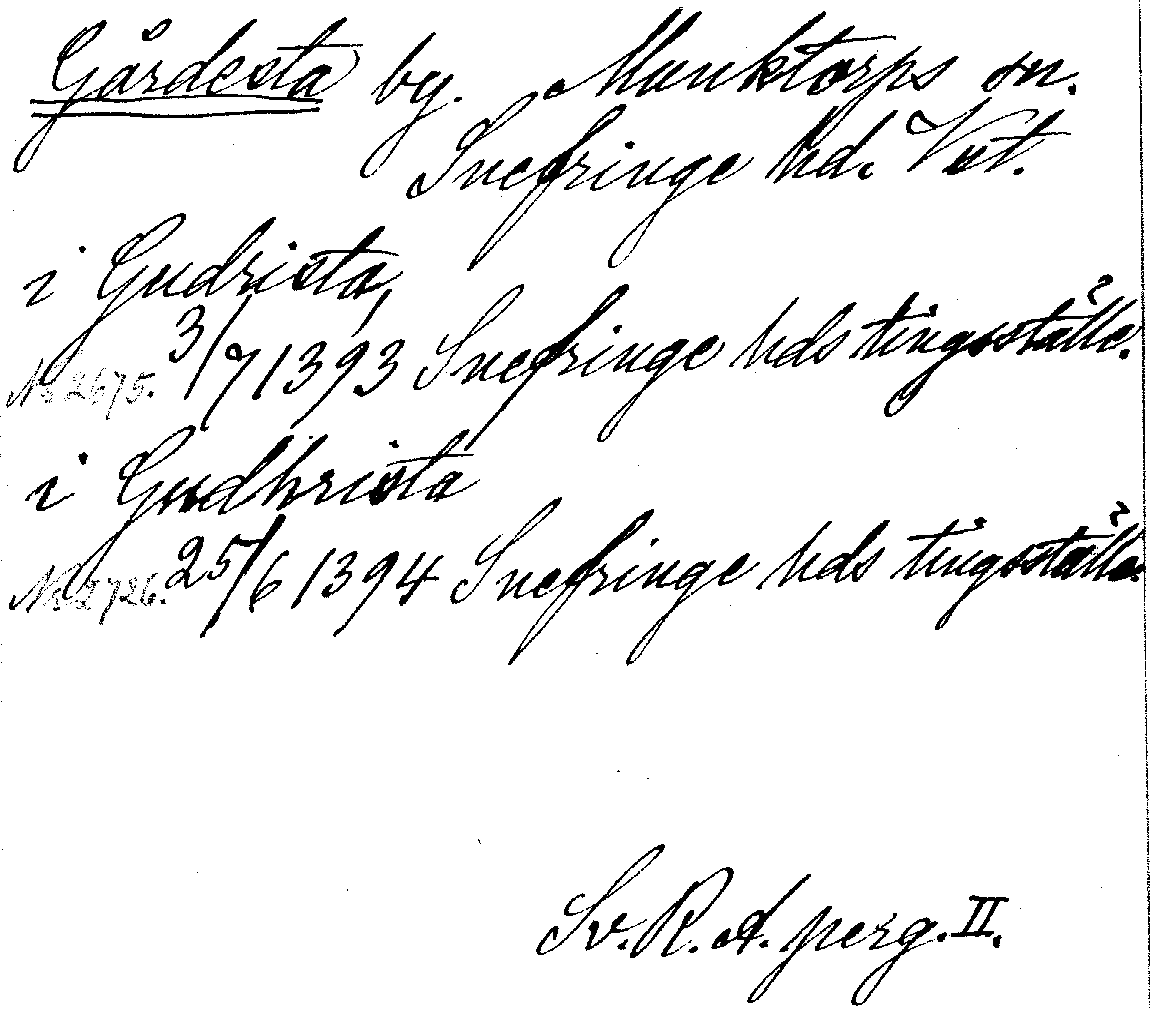 Gårdesta by. Munktorps sn.
Snefringe hd. Vst.
i Gudrista,
No 2675. 3/7 1393 Snefringe hds tingsställe.
i Gudhrista
No 2726. 25/6 1394 Snefringe hds tingsställe.
Sv. R. A. perg. II.